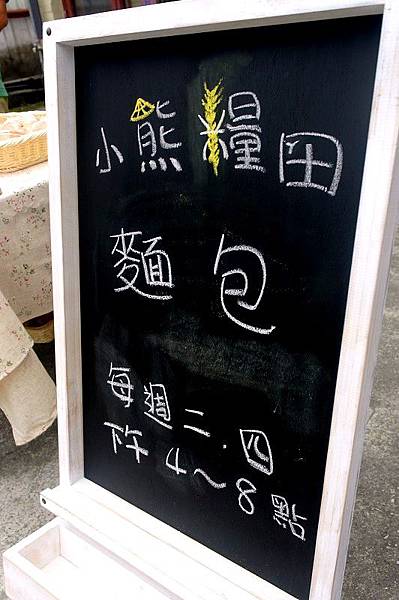 小熊糧田
麵包
每週二.四
下午4~8點